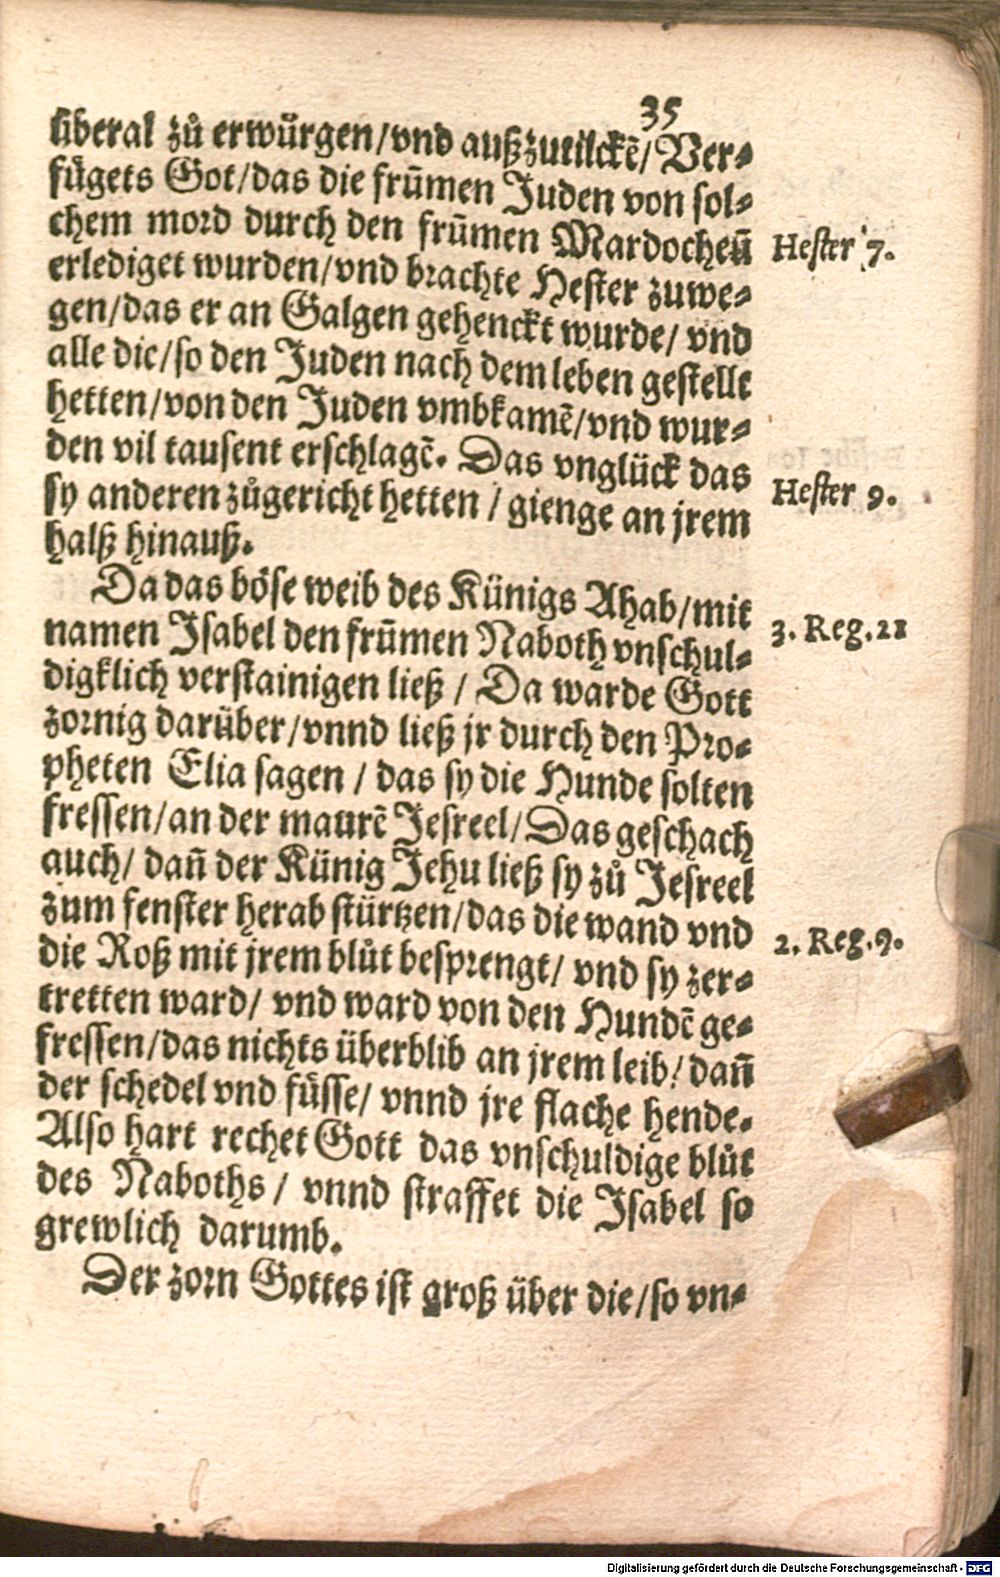 35
überal zů erwürgen/vnd außzutilckē/Ver-
fügets Got/das die frūmen Juden von sol-
chem mord durch den frūmen Mardocheū
Hester 7.
erlediget wurden/vnd brachte Hester zuwe-
gen/das er an Galgen gehenckt wurde/ vnd
alle die/so den Juden nach dem leben gestellt
hetten/von den Juden vmbkamē/vnd wur-
den vil tausent erschlagē. Das vnglück das
Hester 9.
sy anderen zůgericht hetten / gienge an jrem
halß hinauß.
Da das böse weib des Künigs Ahab/mit
3. Reg. 21
namen Isabel den frūmen Naboth vnschul-
digklich verstainigen ließ / Da warde Gott
zornig darüber/vnnd ließ jr durch den Pro-
pheten Elia sagen / das sy die Hunde solten
fressen/an der maurē Jesreel/Das geschach
auch/ dañ der Künig Jehu ließ sy zů Jesreel
zum fenster herab stürtzen/das die wand vnd
2. Reg. 9.
die Roß mit jrem blůt besprengt/ vnd sy zer-
tretten ward/ vnd ward von den Hundē ge-
fressen/das nichts überblib an jrem leib/ dañ
der schedel vnd füsse/ vnnd jre flache hende.
Also hart rechet Gott das vnschuldige blůt
des Naboths/ vnnd straffet die Isabel so
grewlich darumb.
Der zorn Gottes ist groß über die/so vn-
Digitalisierung gefördert durch die Deutsche Forschungsgemeinschaft - DFG